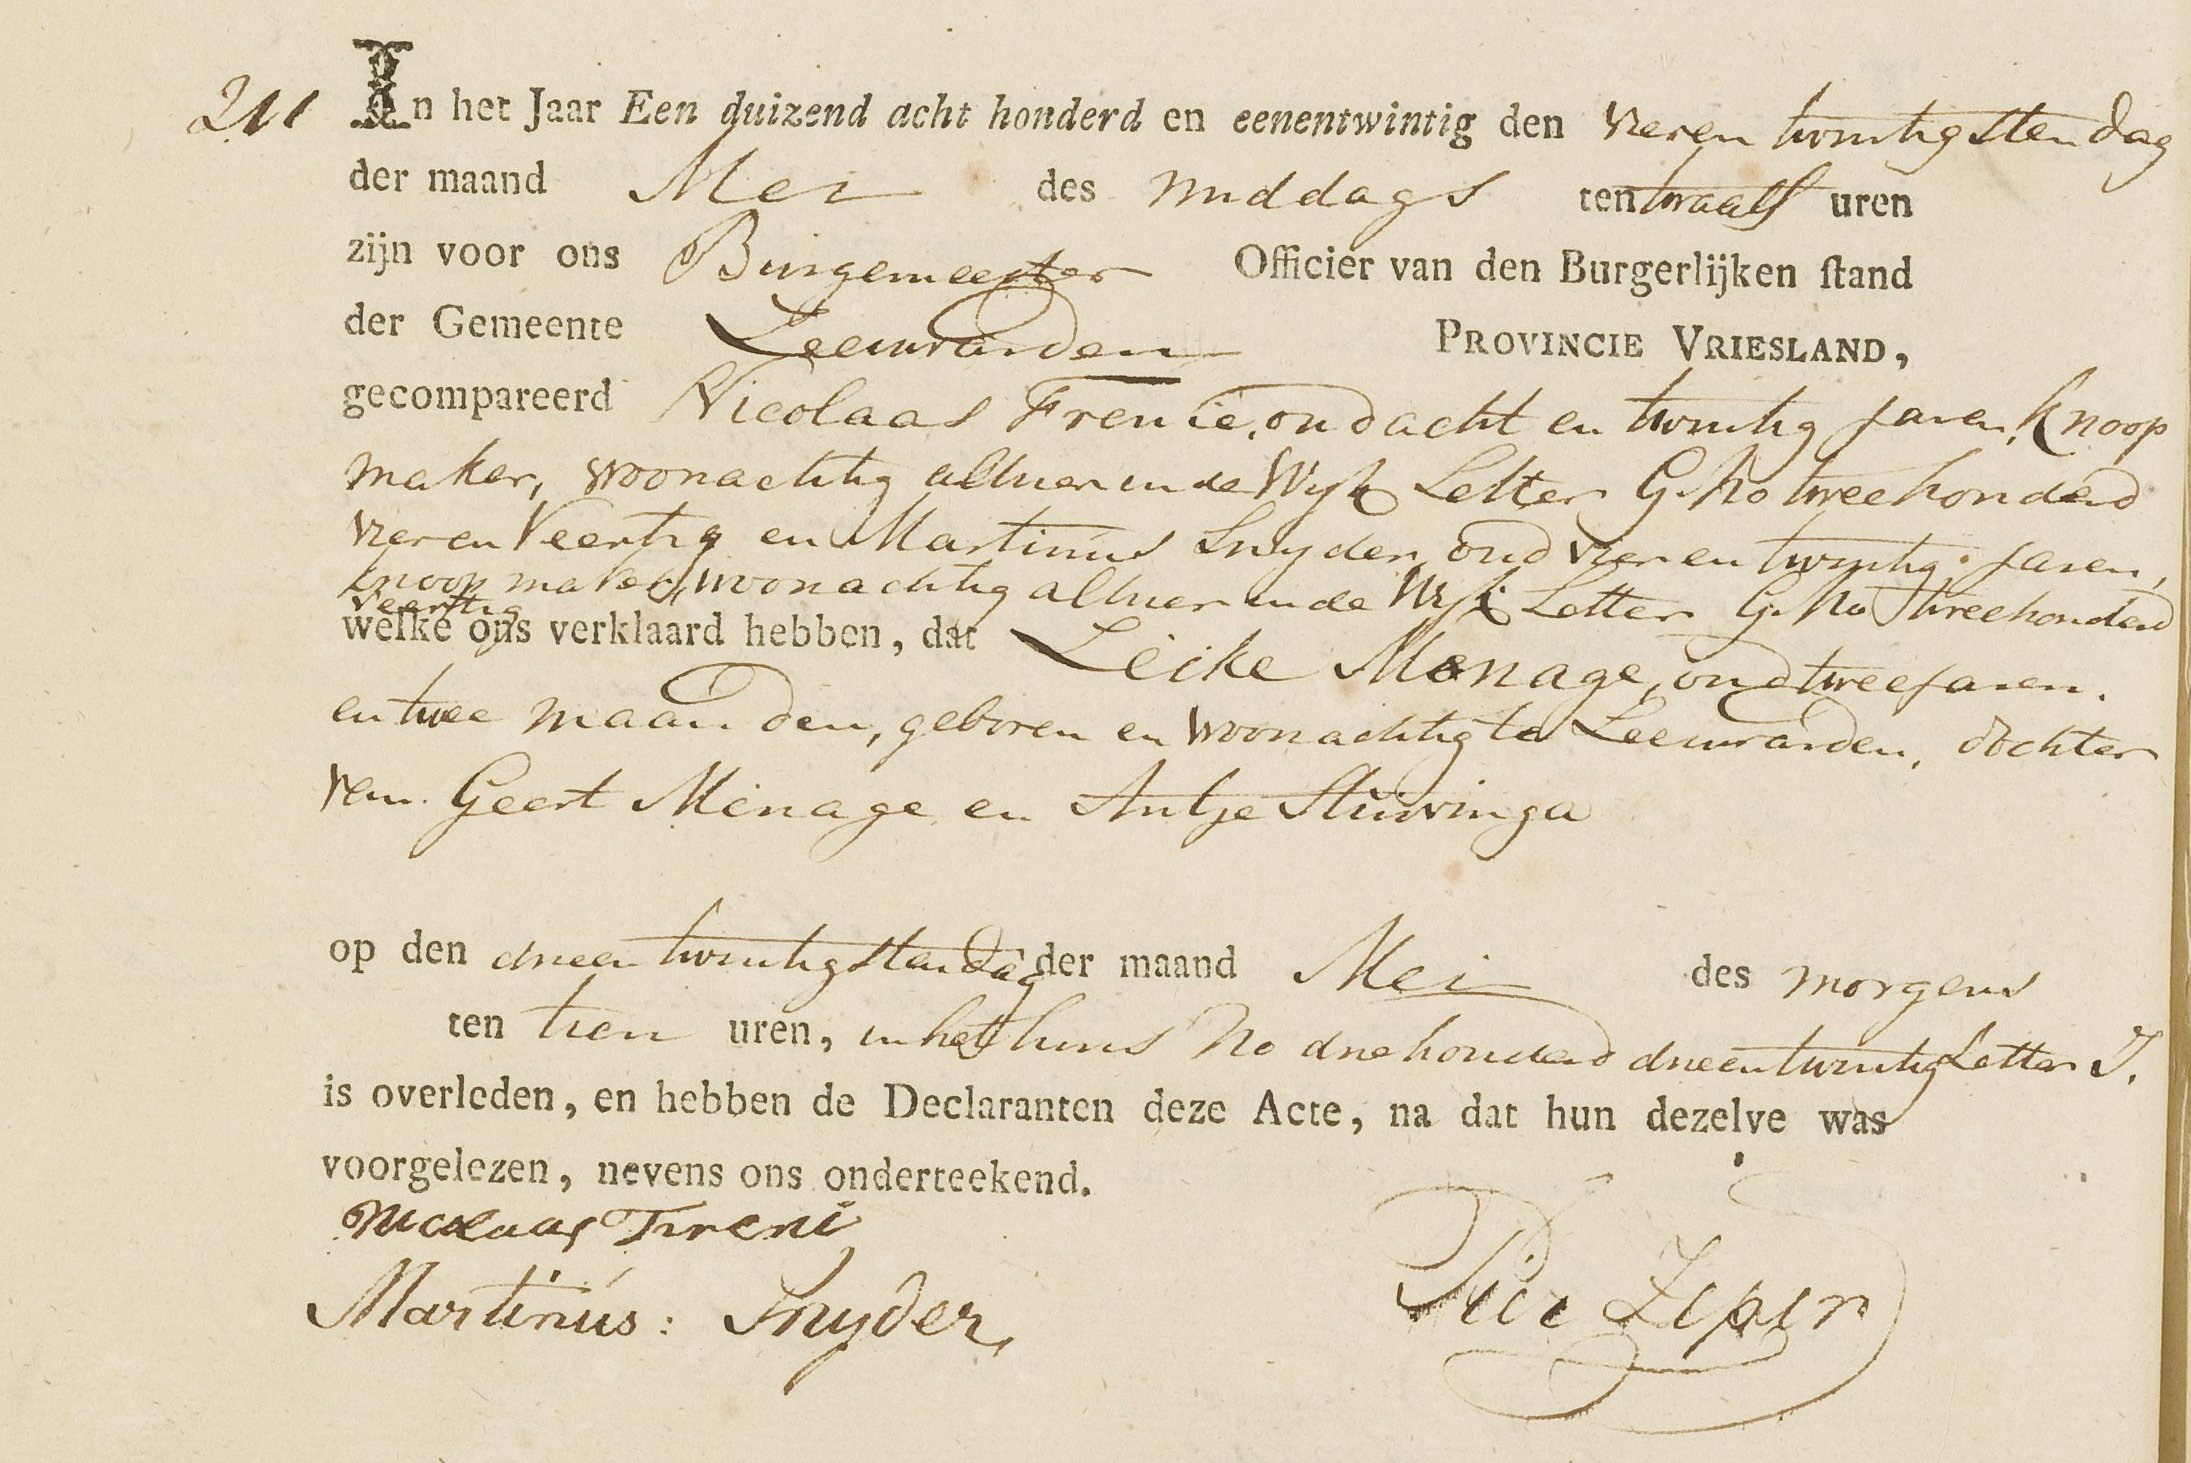 211 In het Jaar Een duizend acht honderd en eenentwintig den vieren twintigsten dag
der maand Mei des middags ten twaalf uren
zijn voor ons Burgemeester Officier van den Burgerlijken stand
der Gemeente Leeuwarden PROVINCIE VRIESLAND,
gecompareerd Nicolaas Frenie, oud acht en twintig jaren, knoop
maker, woonachtig alhier in de Wyk Letter G. No twee honderd
vier en Veertig en Martinus Snyder, oud vier en twintig jaren,
knoop maker, woonachtig alhier in de Wyk Letter G. No twee honderd
veertig
welke ons verklaard hebben, dat Leike Menage, oud twee jaren
en twee maanden, geboren en woonachtig te Leeuwarden, dochter
van Geert Menage en Antje Stuivinga
op den drieen twintigsten dag der maand Mei des morgens
ten tien uren, in het huis No driehonderd drieentwintig Letter I.
is overleden, en hebben de Declaranten deze Acte, na dat hun dezelve was
voorgelezen, nevens ons onderteekend.
Nicolaas Freni
Martinus: Snyder,